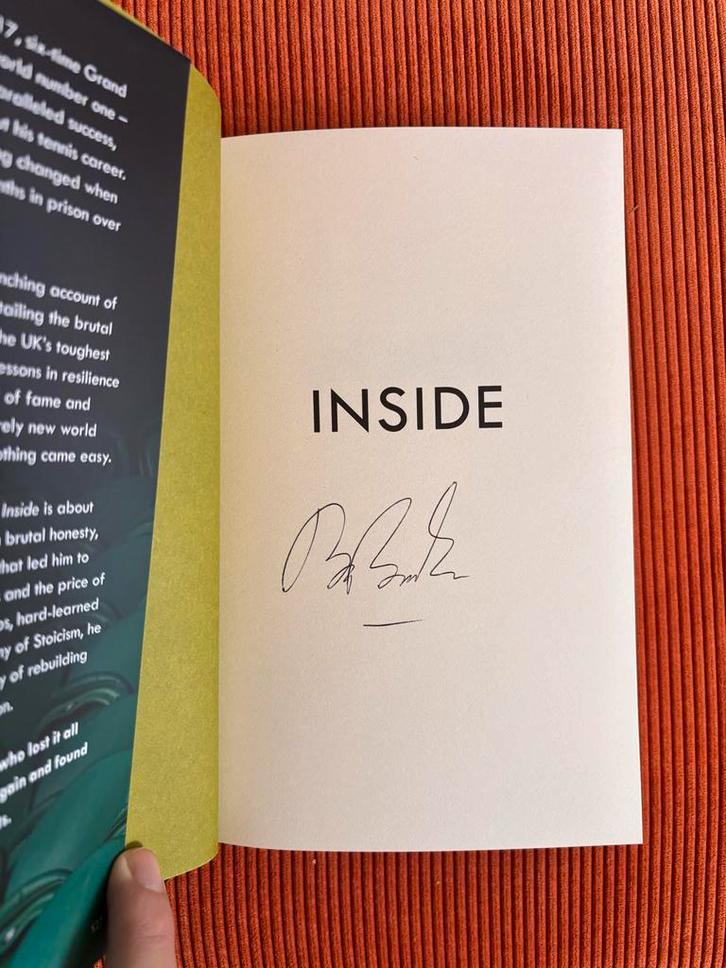 17, six-time Grand
world number one –
paralleled success,
his tennis career.
changed when
in prison over
account of
the brutal
the UK's toughest
lessons in resilience
of fame and
new world
nothing came easy.
Inside is about
brutal honesty,
that led him to
and the price of
hard-learned
of Stoicism, he
of rebuilding
who lost it all
again and found
INSIDE